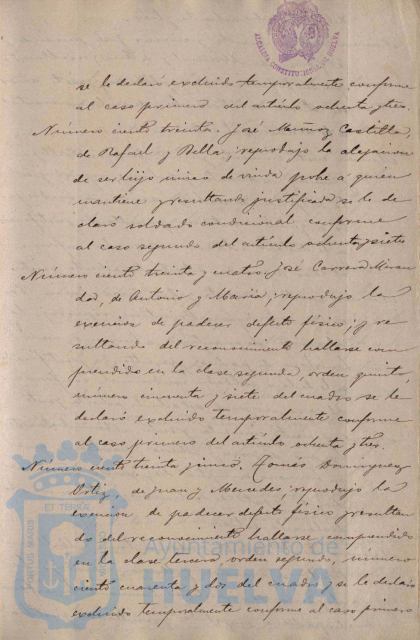 ALCALDIA CONSTITUCIONAL DE HUELVA
se le declaró excluido temporalmente conforme
al caso primero del artículo ochenta y tres.
Número ciento treinta. José Muñoz Castilla,
de Rafael y Bella, reprodujo la alegacion
de ser hijo único de viuda pobre á quien
mantiene y resultando justificada se le de
claró soldado condicional conforme
al caso segundo del artículo ochenta y siete
Número ciento treinta y cuatro José Carrera Miran
da, de Antonio y María; reprodujo la
exencion de padecer defecto físico; y re
sultando del reconocimiento hallarse com
prendido en la clase segunda, orden quinto
número cincuenta y siete del cuadro se le
declaró excluido temporalmente conforme
al caso primero del artículo ochenta y tres.
Número ciento treinta y cinco. Tomás Dominguez
Ortiz, de Juan y Mercedes, reprodujo la
exencion de padecer defecto físico y resultan
do del reconocimiento hallarse comprendido
en la clase tercera, orden segundo, número
ciento cuarenta y dos del cuadro y se le declaró
excluido temporalmente conforme al caso primero
Ayuntamiento de
HUELVA